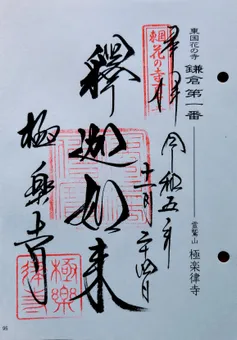 東国花の寺
鎌倉第一番
霊鷲山 極楽律寺
東国
花の寺
奉拝
令和五年
十一月二十四日
釋迦如来
極楽寺
極樂
律寺
95